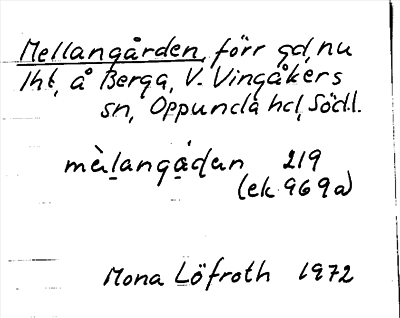 Mellangården, förr gd, nu
lht, å Berga, V. Vingåkers
sn, Oppunda hd, Södl.
mèlangáḍan 219
(ek 969a)
Mona Löfroth 1972